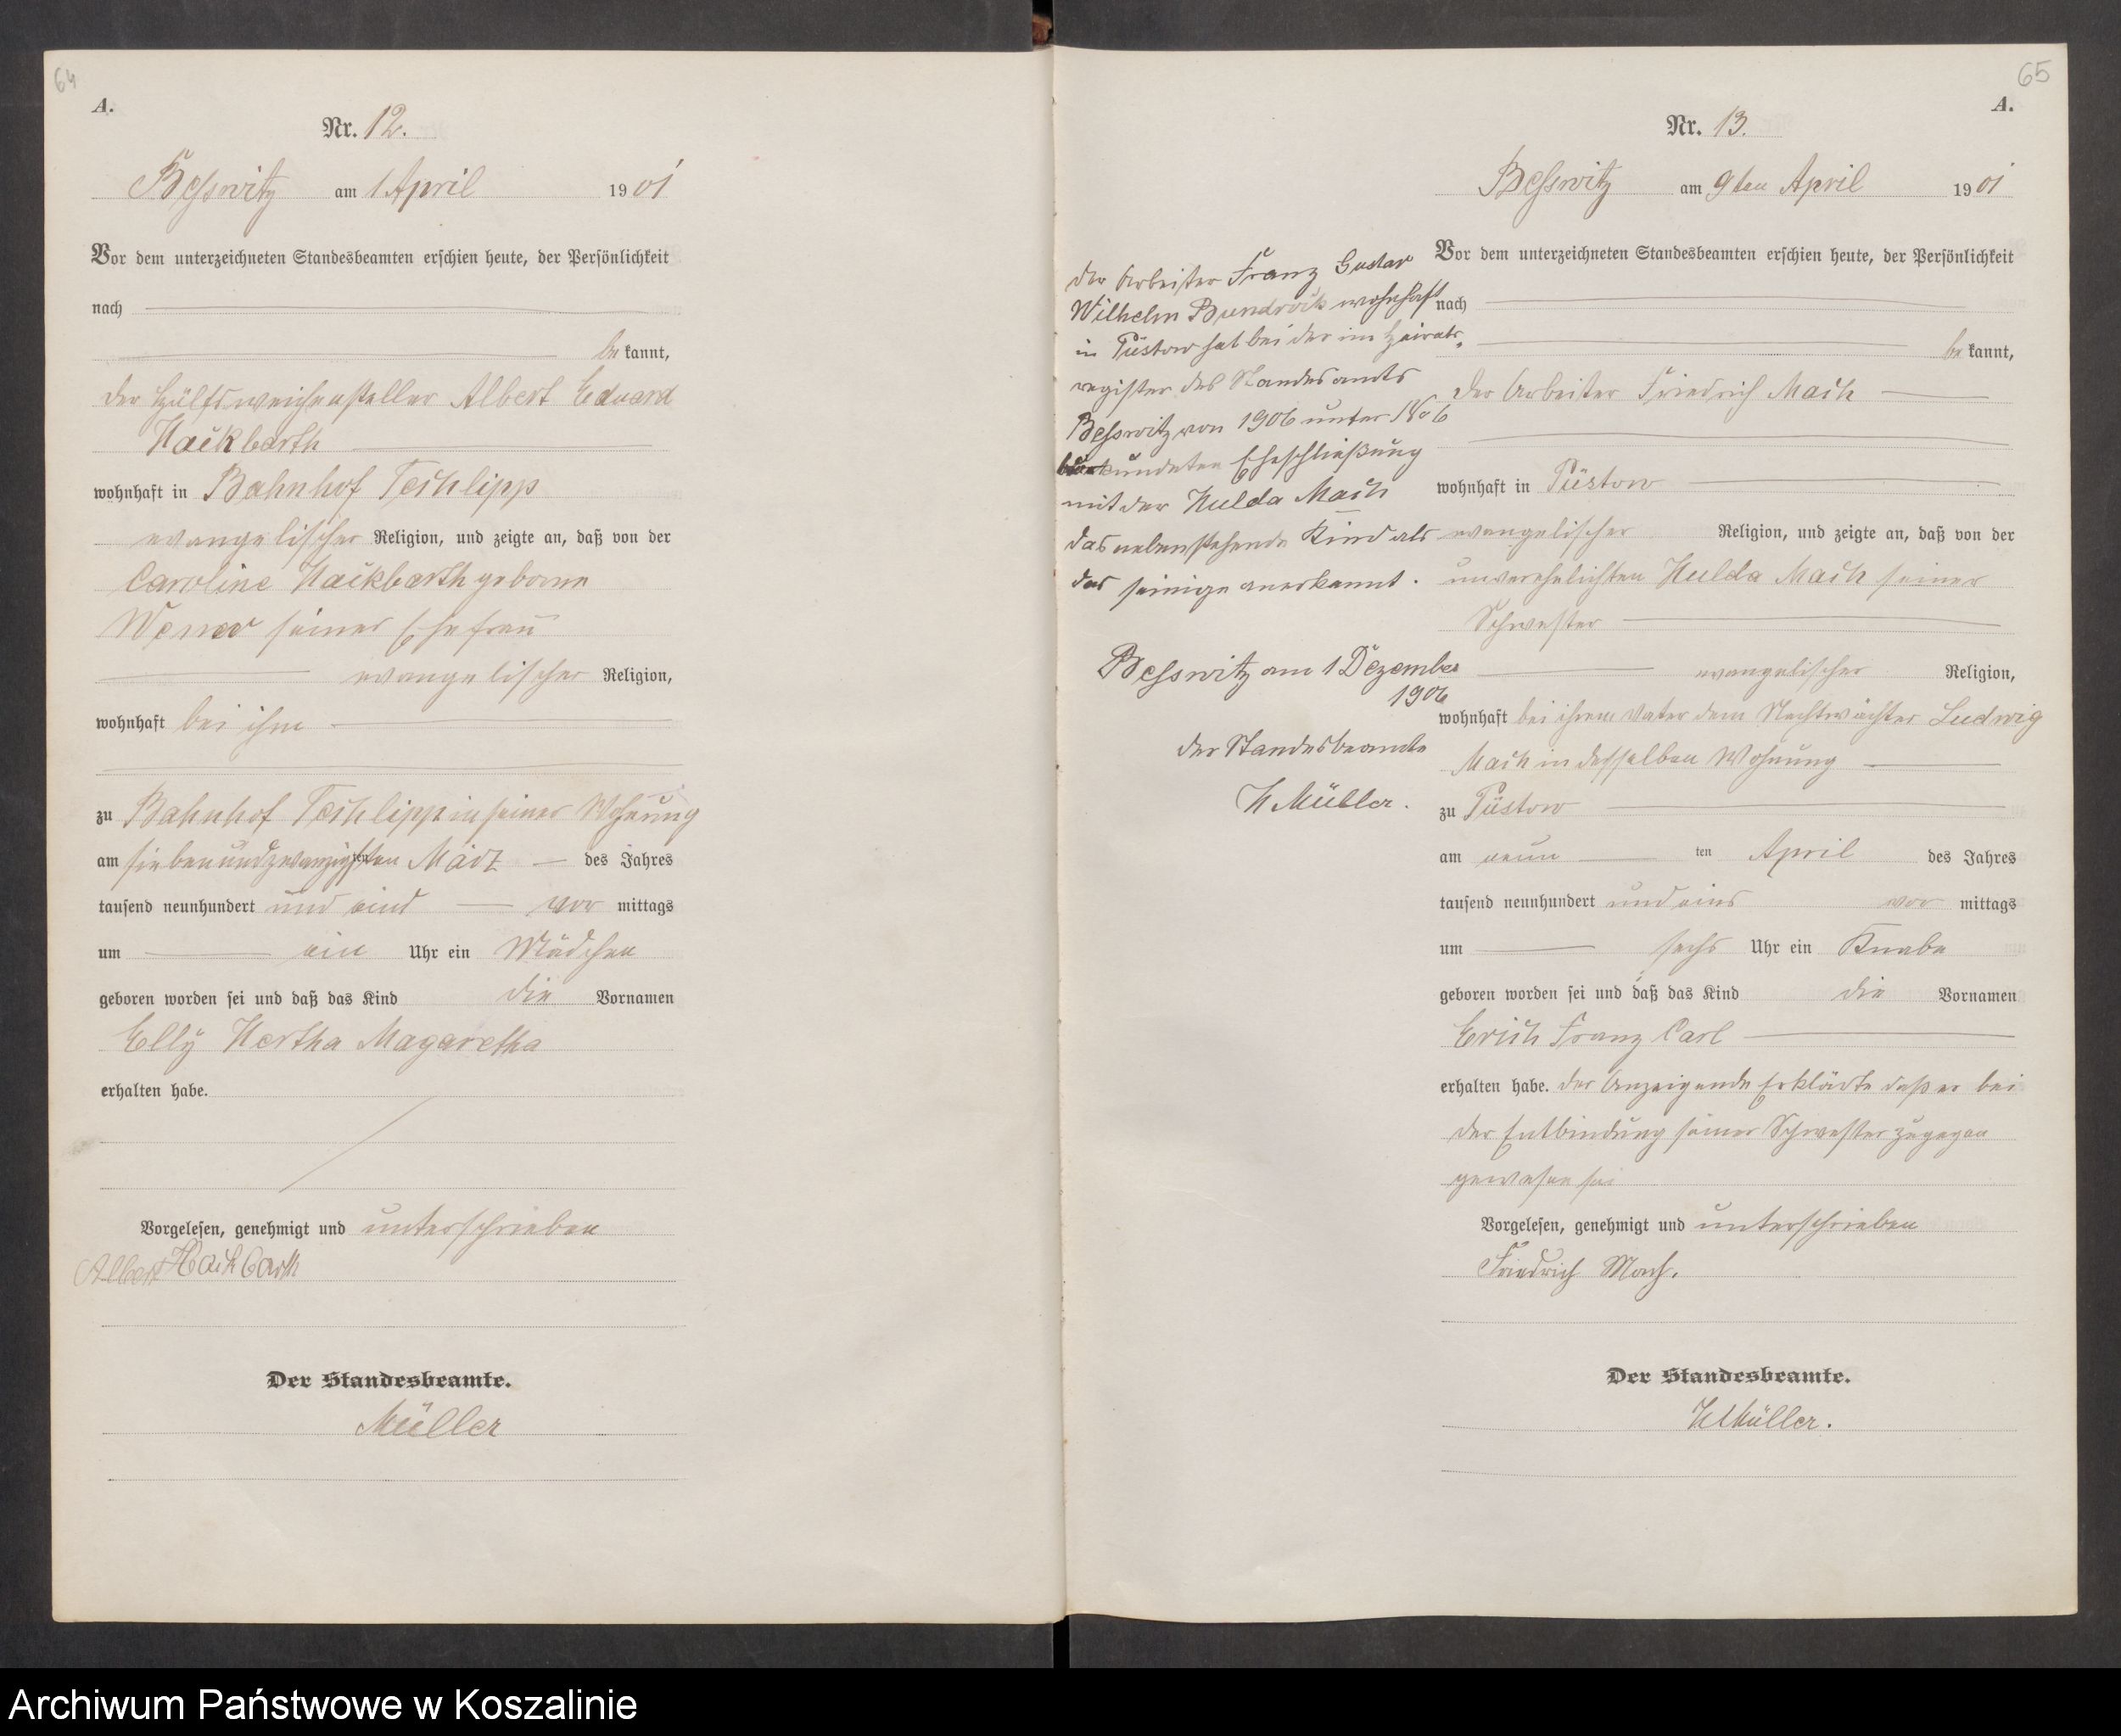 64
A.
Nr. 12.
Besswitz am 1 April 1901
Vor dem unterzeichneten Standesbeamten erschien heute, der Persönlichkeit
nach
be kannt,
der Hülfsweichensteller Albert Eduard
Hackbarth
wohnhaft in Bahnhof Techlipp
evangelischer Religion, und zeigte an, daß von der
Caroline Hackbarth geborene
seiner Ehefrau
evangelischer Religion,
wohnhaft bei ihm
zu Bahnhof Techlipp in seiner Wohnung
am siebenundzwanzigsten März des Jahres
tausend neunhundert und eins vor mittags
um ein Uhr ein Mädchen
geboren worden sei und daß das Kind die Vornamen
Elly Hertha Magaretha
erhalten habe.
Vorgelesen, genehmigt und unterschrieben
Albert Hackbarth
Der Standesbeamte.
Müller
65
A.
Nr. 13.
Besswitz am 9ten April 1901
Vor dem unterzeichneten Standesbeamten erschien heute, der Persönlichkeit
nach
be kannt,
der Arbeiter Friedrich Mach
wohnhaft in Püstow
evangelischer Religion, und zeigte an, daß von der
unverehelichten Hulda Mach seiner
Schwester
evangelischer Religion,
wohnhaft bei ihrem Vater dem Nachtwächter Ludwig
Mach in desselben Wohnung
zu Püstow
am neun ten April des Jahres
tausend neunhundert und eins vor mittags
um sechs Uhr ein Knabe
geboren worden sei und daß das Kind die Vornamen
Erich Franz Carl
erhalten habe. der Anzeigende Erklärte daß er bei
der Entbindung seiner Schwester zugegen
gewesen sei
Vorgelesen, genehmigt und unterschrieben
Friedrich Mach.
Der Standesbeamte.
H Müller.
der Arbeiter Franz Gustav
Wilhelm Bundrock wohnhaft
in Püstow hat bei der im Heirats-
register des Standesamts
Besswitz von 1906 unter No 6
beurkundeten Eheschließung
mit der Hulda Mach
das nebenstehende Kind als
das seinige anerkannt.
Besswitz am 1 Dezember
1906
der Standesbeamte
H Müller.
Archiwum Państwowe w Koszalinie